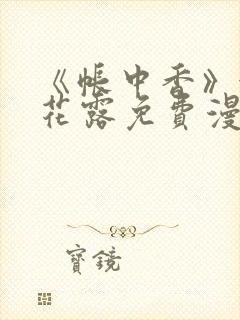 《帐中香》
花露免费漫
寳鏡